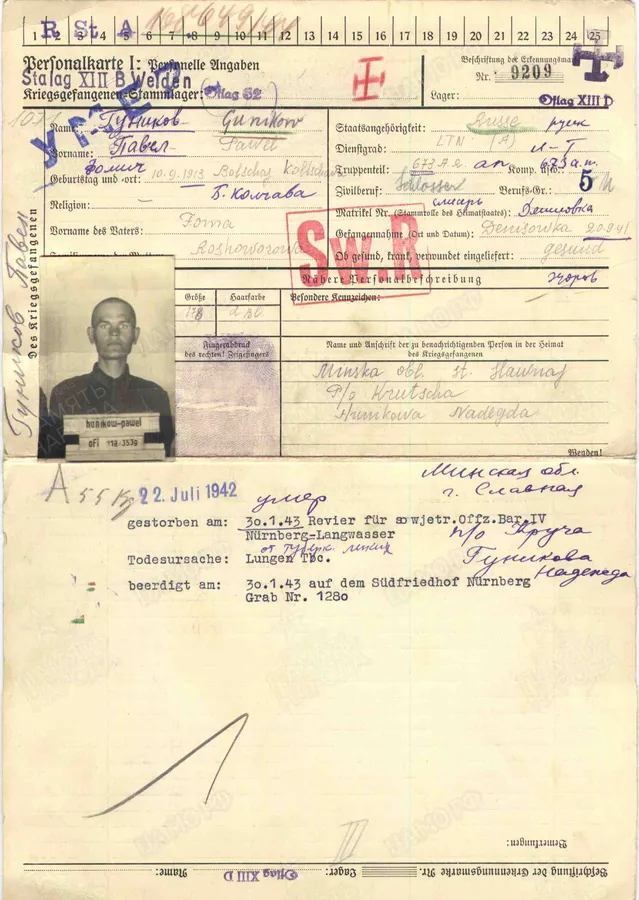 R St A
1 2 3 4 5 6 7 8 9 10 11 12 13 14 15 16 17 18 19 20 21 22 23 24 25
Personalkarte I: Personelle Angaben
Stalag XIII B Weiden
Kriegsgefangenen-Stammlager: Oflag 62
Beschriftung der Erkennungsmarke
Nr. 9209
Lager: Oflag XIII D
УМЕР
Des Kriegsgefangenen
Гуников Павел
Name: Гуников Gunikow
Vorname: Павел Pawel
Фомич
Geburtstag und -ort: 10.9.1913
Б. Колчава
Religion:
Vorname des Vaters: Foma
Staatsangehörigkeit: Russe русск
Dienstgrad: LTN (A) Л-Т
Truppenteil: 673 A.R. ап Komp. usw.: 673 а.п.
Zivilberuf: Schlosser Berufs-Gr.: 5
слесарь
Matrikel Nr. (Stammrolle des Heimatstaates): Денисовка
Gefangennahme (Ort und Datum): Denisowka 20.9.41
Ob gesund, krank, verwundet eingeliefert: gesund
Sw.R
Nähere Personalbeschreibung здоров
Größe Haarfarbe Besondere Kennzeichen:
178
Fingerabdruck
des rechten! Zeigefingers
Name und Anschrift der zu benachrichtigenden Person in der Heimat
des Kriegsgefangenen
Minska obl. st.
P/o Krutscha
Hunikowa Nadegda
hunikow-pawel
Wenden!
A 55 Kg 22. Juli 1942
Минская обл.
г. Славная
п/о Круча
Гуникова
Надежда
умер
gestorben am: 30.1.43 Revier für sowjetr.Offz.Bar.IV
Nürnberg-Langwasser
от туберк. легких
Todesursache: Lungen Tbc.
beerdigt am: 30.1.43 auf dem Südfriedhof Nürnberg
Grab Nr. 1280
Bemerkungen:
Name: Oflag XIII D Lager: Beschriftung der Erkennungsmarke Nr.